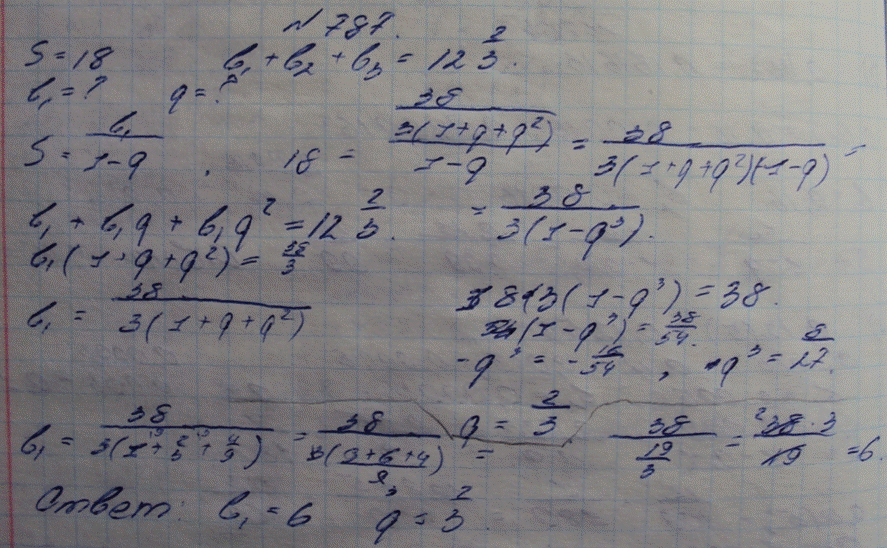 N 787.
S = 18 b₁ + b₂ + b₃ = 12 2/3.
b₁ = ? q = ?
S = b₁/(1-q), 18 = (38/(3(1+q+q²)))/(1-q) = 38/(3(1+q+q²)(1-q)) =
b₁ + b₁q + b₁q² = 12 2/3. = 38/(3(1-q³)).
b₁(1+q+q²) = 38/3
b₁ = 38/(3(1+q+q²)) 18·3(1-q³) = 38.
54(1-q³) = 38/54.
-q³ = -16/54, q³ = 8/27.
q = 2/3
b₁ = 38/(3(1+2/3+4/9)) = 38/(3(9+6+4)/9) = 38/(19/3) = 38·3/19 = 6.
Ответ: b₁ = 6 q = 2/3.